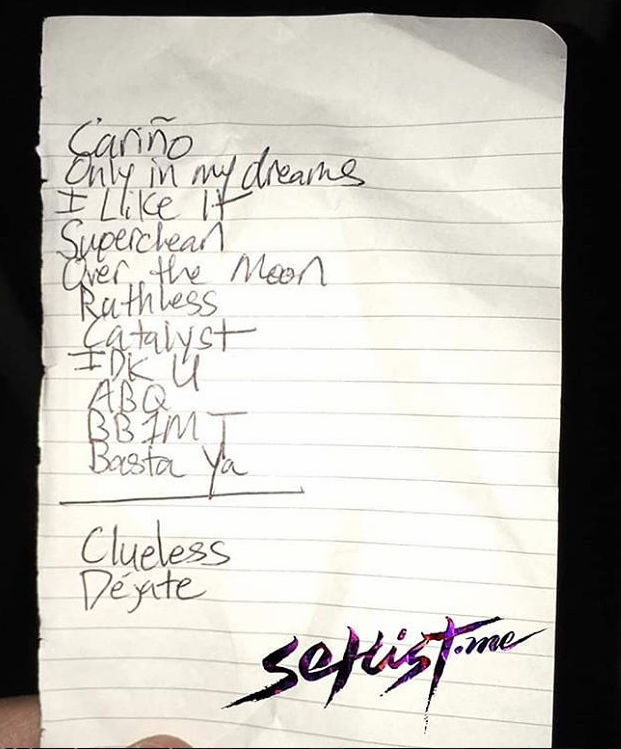 Cariño
Only in my dreams
I Llike It
Superclean
Over the Moon
Ruthless
Catalyst
IDK U
ABQ
BBIMT
Basta Ya
Clueless
Déjate
setlist.me